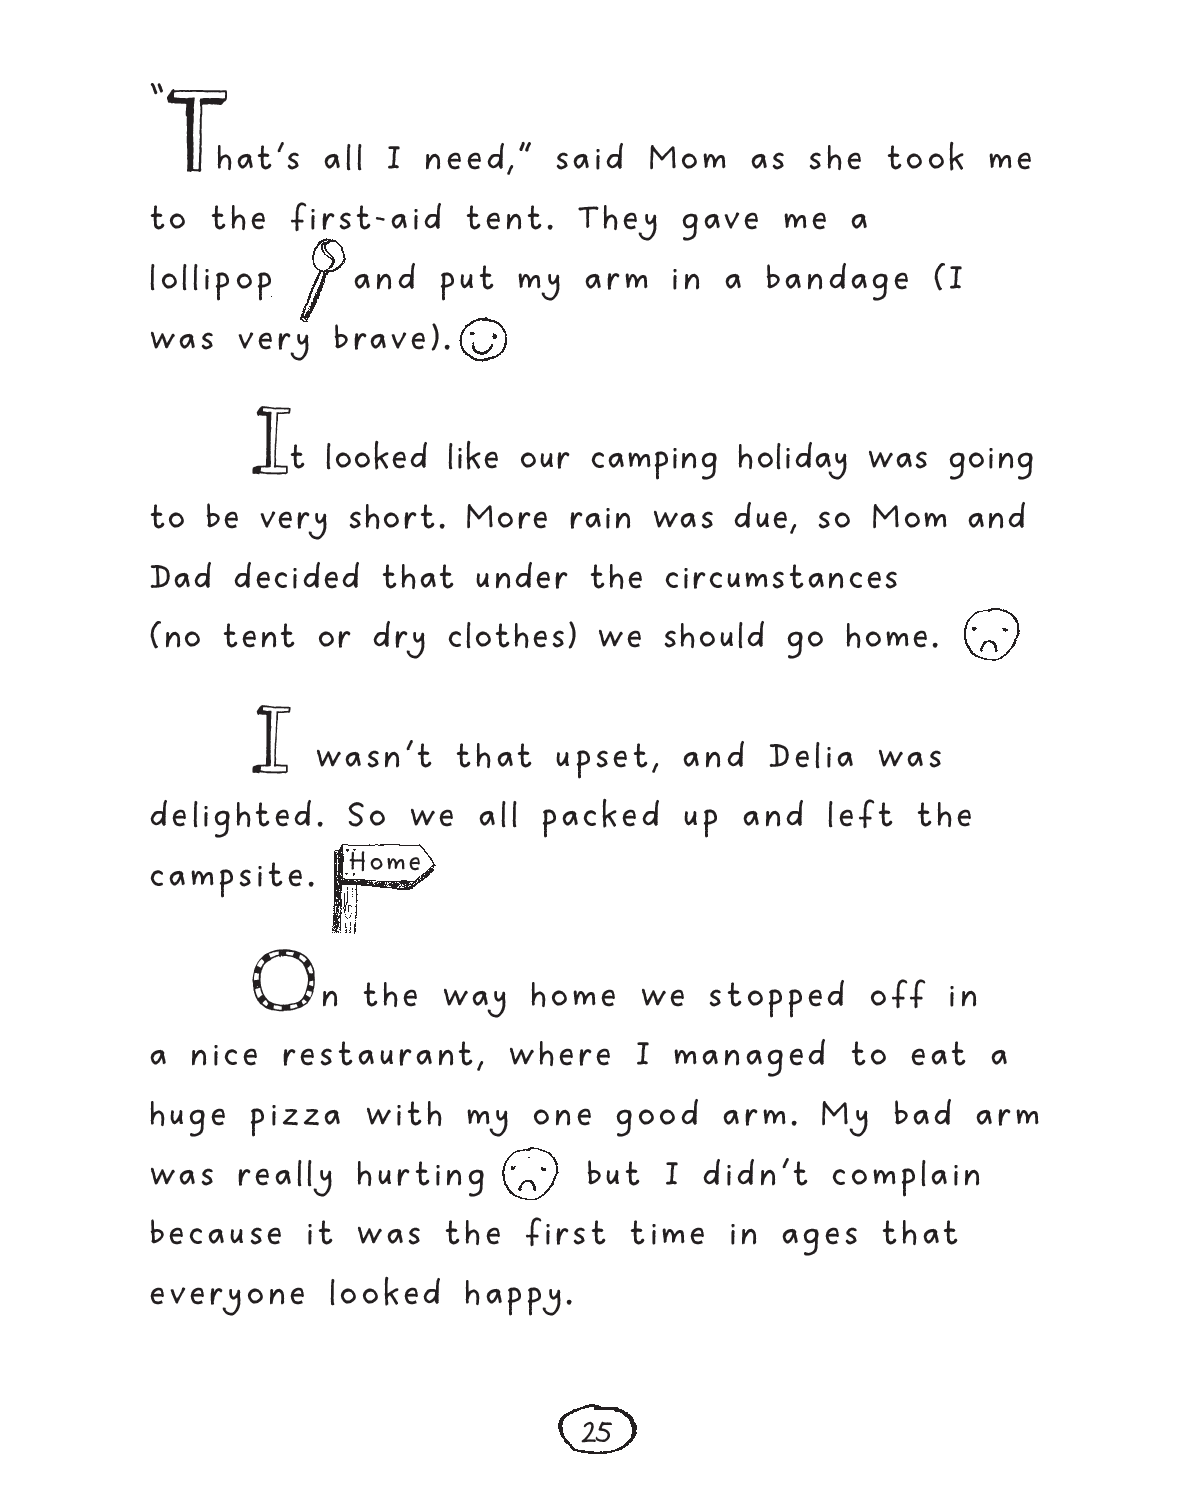 "That's all I need," said Mom as she took me
to the first-aid tent. They gave me a
lollipop and put my arm in a bandage (I
was very brave).
It looked like our camping holiday was going
to be very short. More rain was due, so Mom and
Dad decided that under the circumstances
(no tent or dry clothes) we should go home.
I wasn't that upset, and Delia was
delighted. So we all packed up and left the
campsite. Home
On the way home we stopped off in
a nice restaurant, where I managed to eat a
huge pizza with my one good arm. My bad arm
was really hurting but I didn't complain
because it was the first time in ages that
everyone looked happy.
25